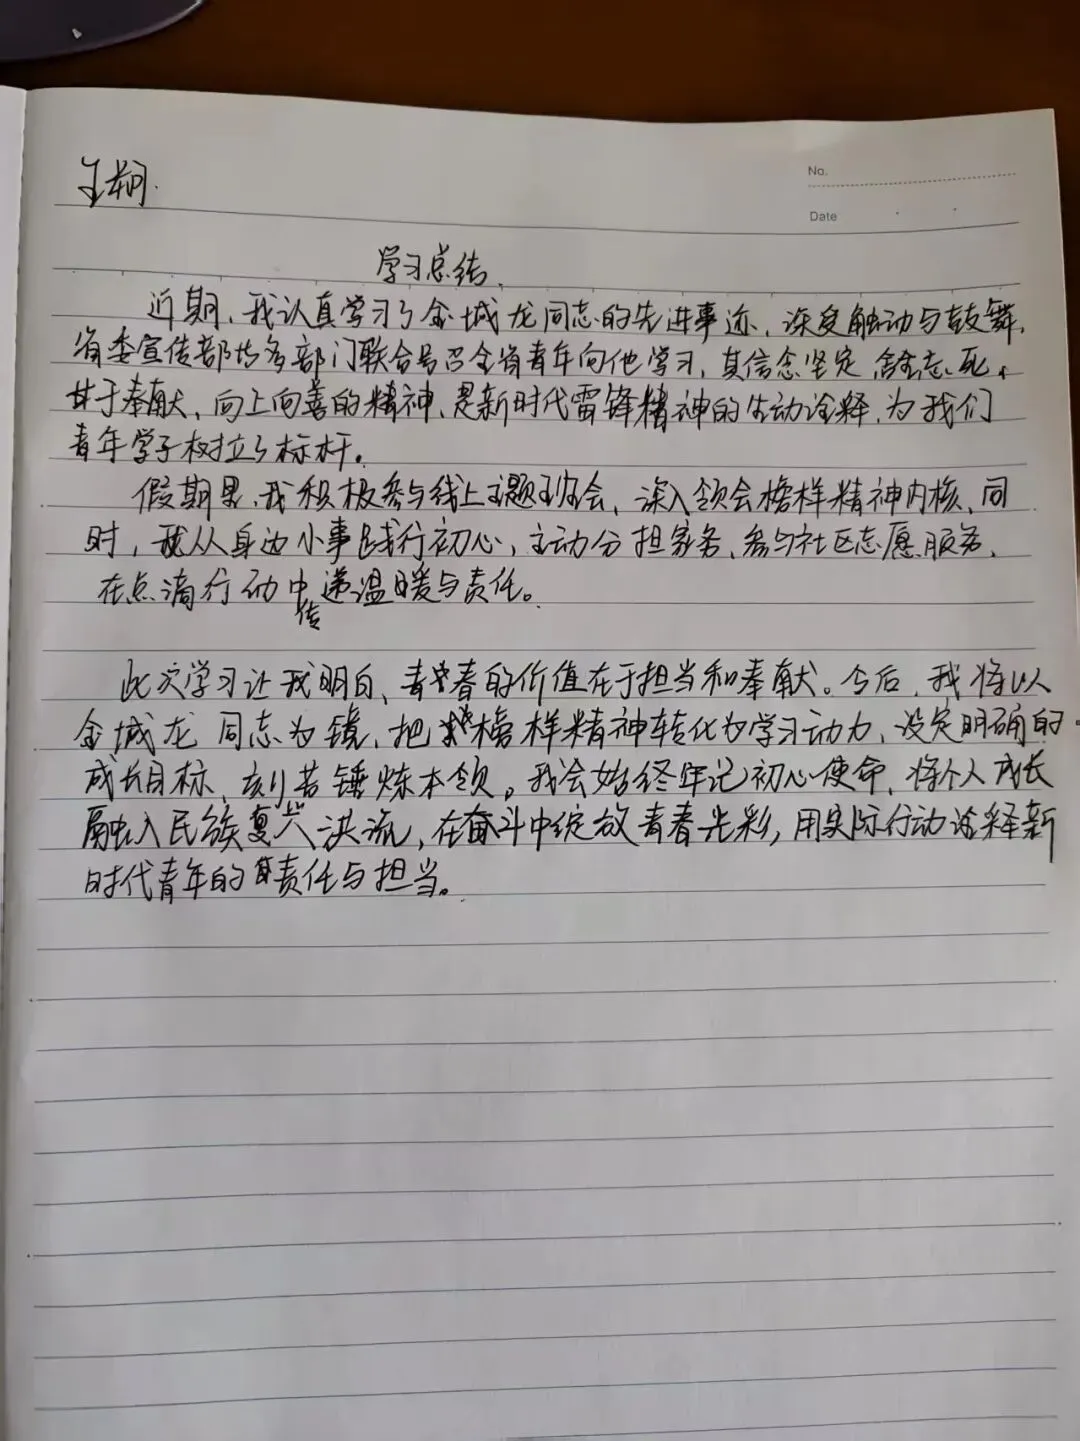 No.
Date
王
学习总结.
近期,我认真学习了金城龙同志的先进事迹,深受触动与鼓舞,
省委宣传部等多部门联合号召全省青年向他学习,其信念坚定
甘于奉献、向上向善的精神,是新时代雷锋精神的生动诠释,为我们
青年学子树立了标杆。
假期里,我积极参与线上主题班会,深入领会榜样精神内核,同
时,我从身边小事践行初心,主动分担家务、参与社区志愿服务,
在点滴行动中传递温暖与责任。
此次学习让我明白,青春的价值在于担当和奉献。今后,我将以
金城龙同志为镜,把榜样精神转化为学习动力,设定明确的
成长目标,刻苦锤炼本领。我会始终牢记初心使命,将个人成长
融入民族复兴洪流,在奋斗中绽放青春光彩,用实际行动诠释新
时代青年的责任与担当。